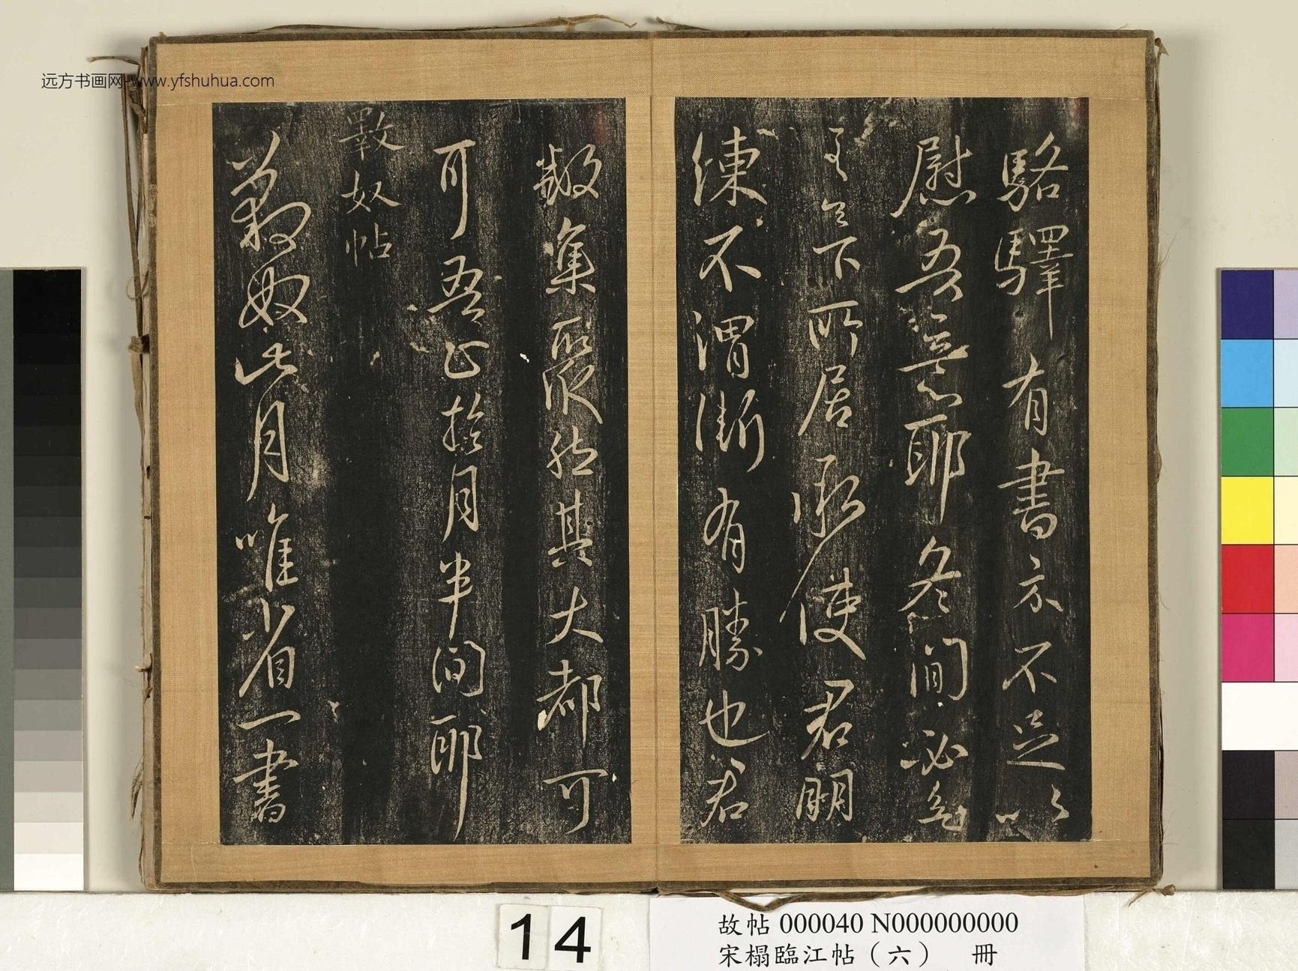 远方书画网-www.yfshuhua.com
駱驛有書示不足以
慰吾意耶冬間必
下所居承使君明
練不謂漸有勝也君
散集聚然其大都可
可吾止於月半間耶
奴帖
奴此月唯省一書
14
故帖 000040 N000000000
宋榻臨江帖（六） 冊